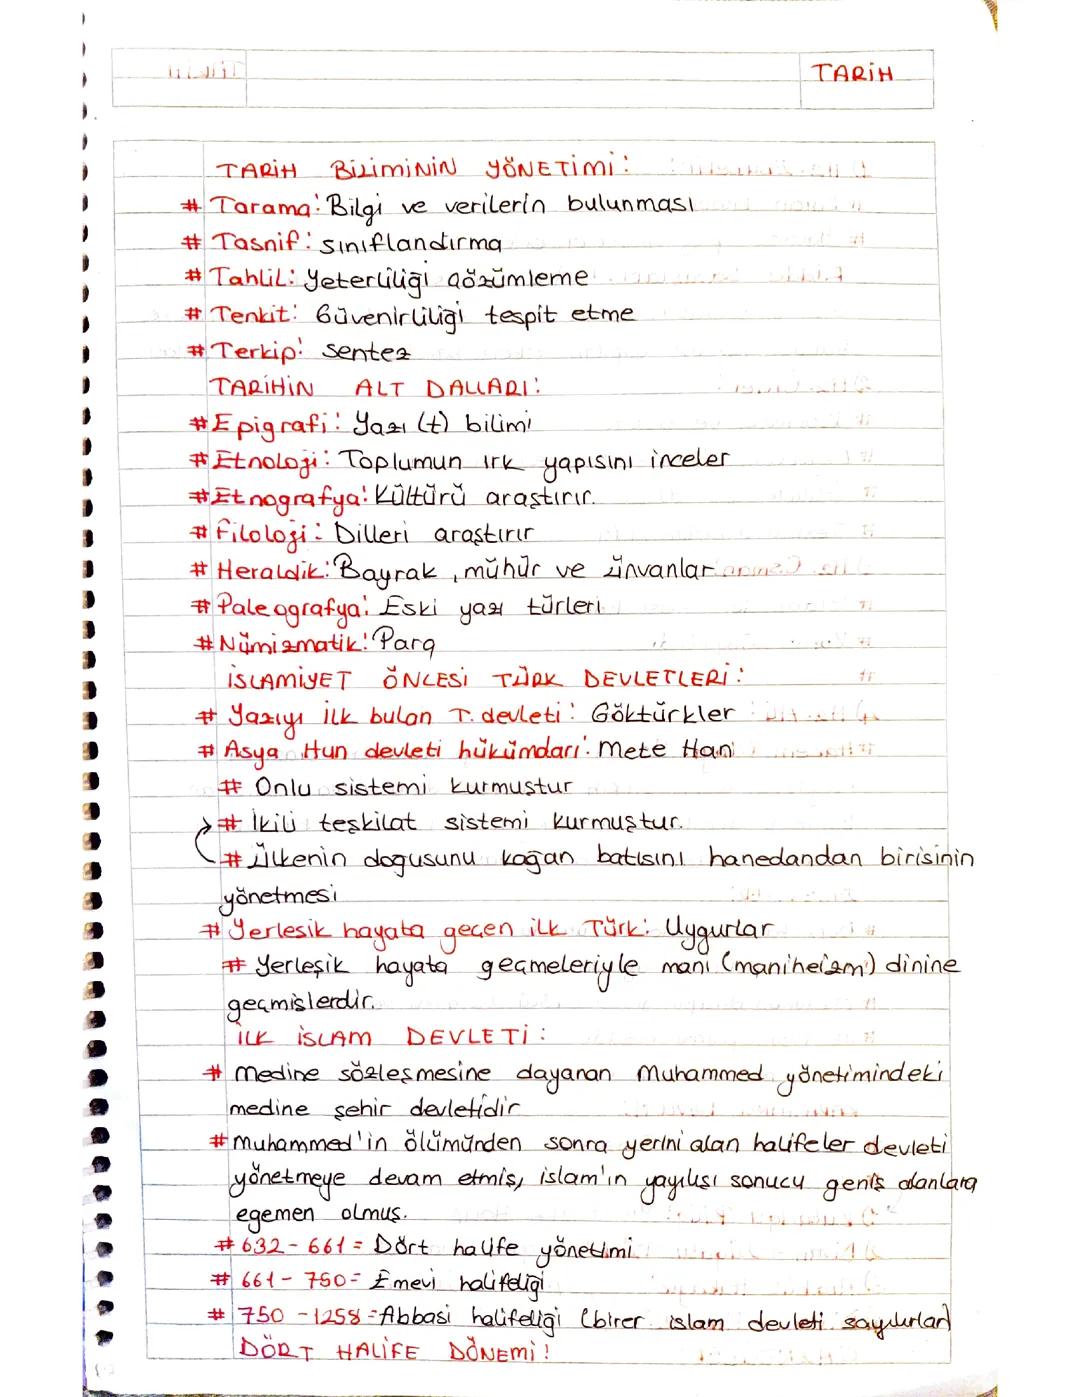 TARİH
TARİH BİLİMİNİN YÖNETİMİ:
# Tarama: Bilgi ve verilerin bulunması
# Tasnif: sınıflandırma
# Tahlil: Yeterliliği çözümleme
# Tenkit: Güvenirliliği tespit etme
# Terkip: sentez
TARİHİN ALT DALLARI:
# Epigrafi: Yazı (t) bilimi
# Etnoloji: Toplumun ırk yapısını inceler
# Etnografya: Kültürü araştırır.
# Filoloji: Dilleri araştırır
# Heraldik: Bayrak, mühür ve ünvanlar
# Paleografya: Eski yazı türleri
# Nümizmatik: Para
İSLAMİYET ÖNCESİ TÜRK DEVLETLERİ:
# Yazıyı ilk bulan T. devleti: Göktürkler
# Asya Hun devleti hükümdarı: Mete Han
# Onlu sistemi kurmuştur
# İkili teşkilat sistemi kurmuştur.
# Ülkenin dogusunu kağan batısını hanedandan birisinin
yönetmesi
# Yerlesik hayata geçen ilk Türk: Uygurlar
# Yerleşik hayata geçmeleriyle mani (maniheizm) dinine
geçmişlerdir.
İLK İSLAM DEVLETİ:
# medine sözleşmesine dayanan Muhammed yönetimindeki
medine şehir devletidir
# Muhammed'in ölümünden sonra yerini alan halifeler devleti
yönetmeye devam etmiş, islam'ın yayılışı sonucu geniş alanlara
egemen olmuş.
# 632-661= Dört halife yönetimi
# 661-750= Emevi halifeliği
# 750-1258= Abbasi halifeliği (birer islam devleti sayılırlar)
DÖRT HALİFE DÖNEMİ!